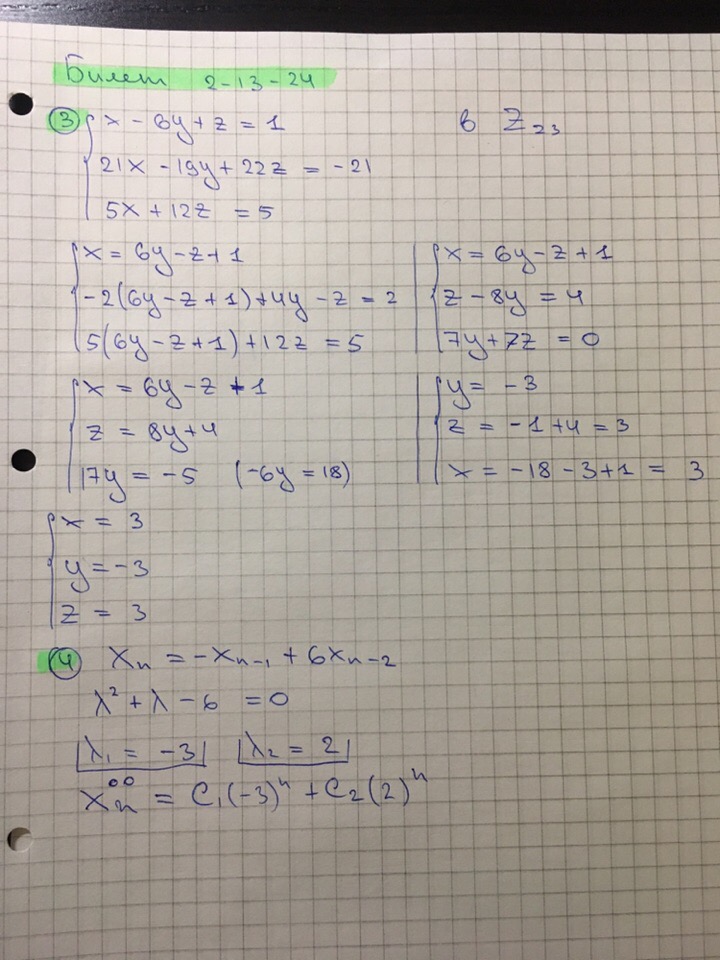 Билет 2-13-24
③ x - 6y + z = 1 в Z₂₃
21x - 19y + 22z = -21
5x + 12z = 5
x = 6y - z + 1
-2(6y - z + 1) + 4y - z = 2
5(6y - z + 1) + 12z = 5
x = 6y - z + 1
z - 8y = 4
7y + 7z = 0
x = 6y - z + 1
z = 8y + 4
17y = -5 (-6y = 18)
y = -3
z = -1 + 4 = 3
x = -18 - 3 + 1 = 3
x = 3
y = -3
z = 3
④ Xₙ = -Xₙ₋₁ + 6Xₙ₋₂
λ² + λ - 6 = 0
λ₁ = -3 λ₂ = 2
Xₙ°° = C₁(-3)ⁿ + C₂(2)ⁿ